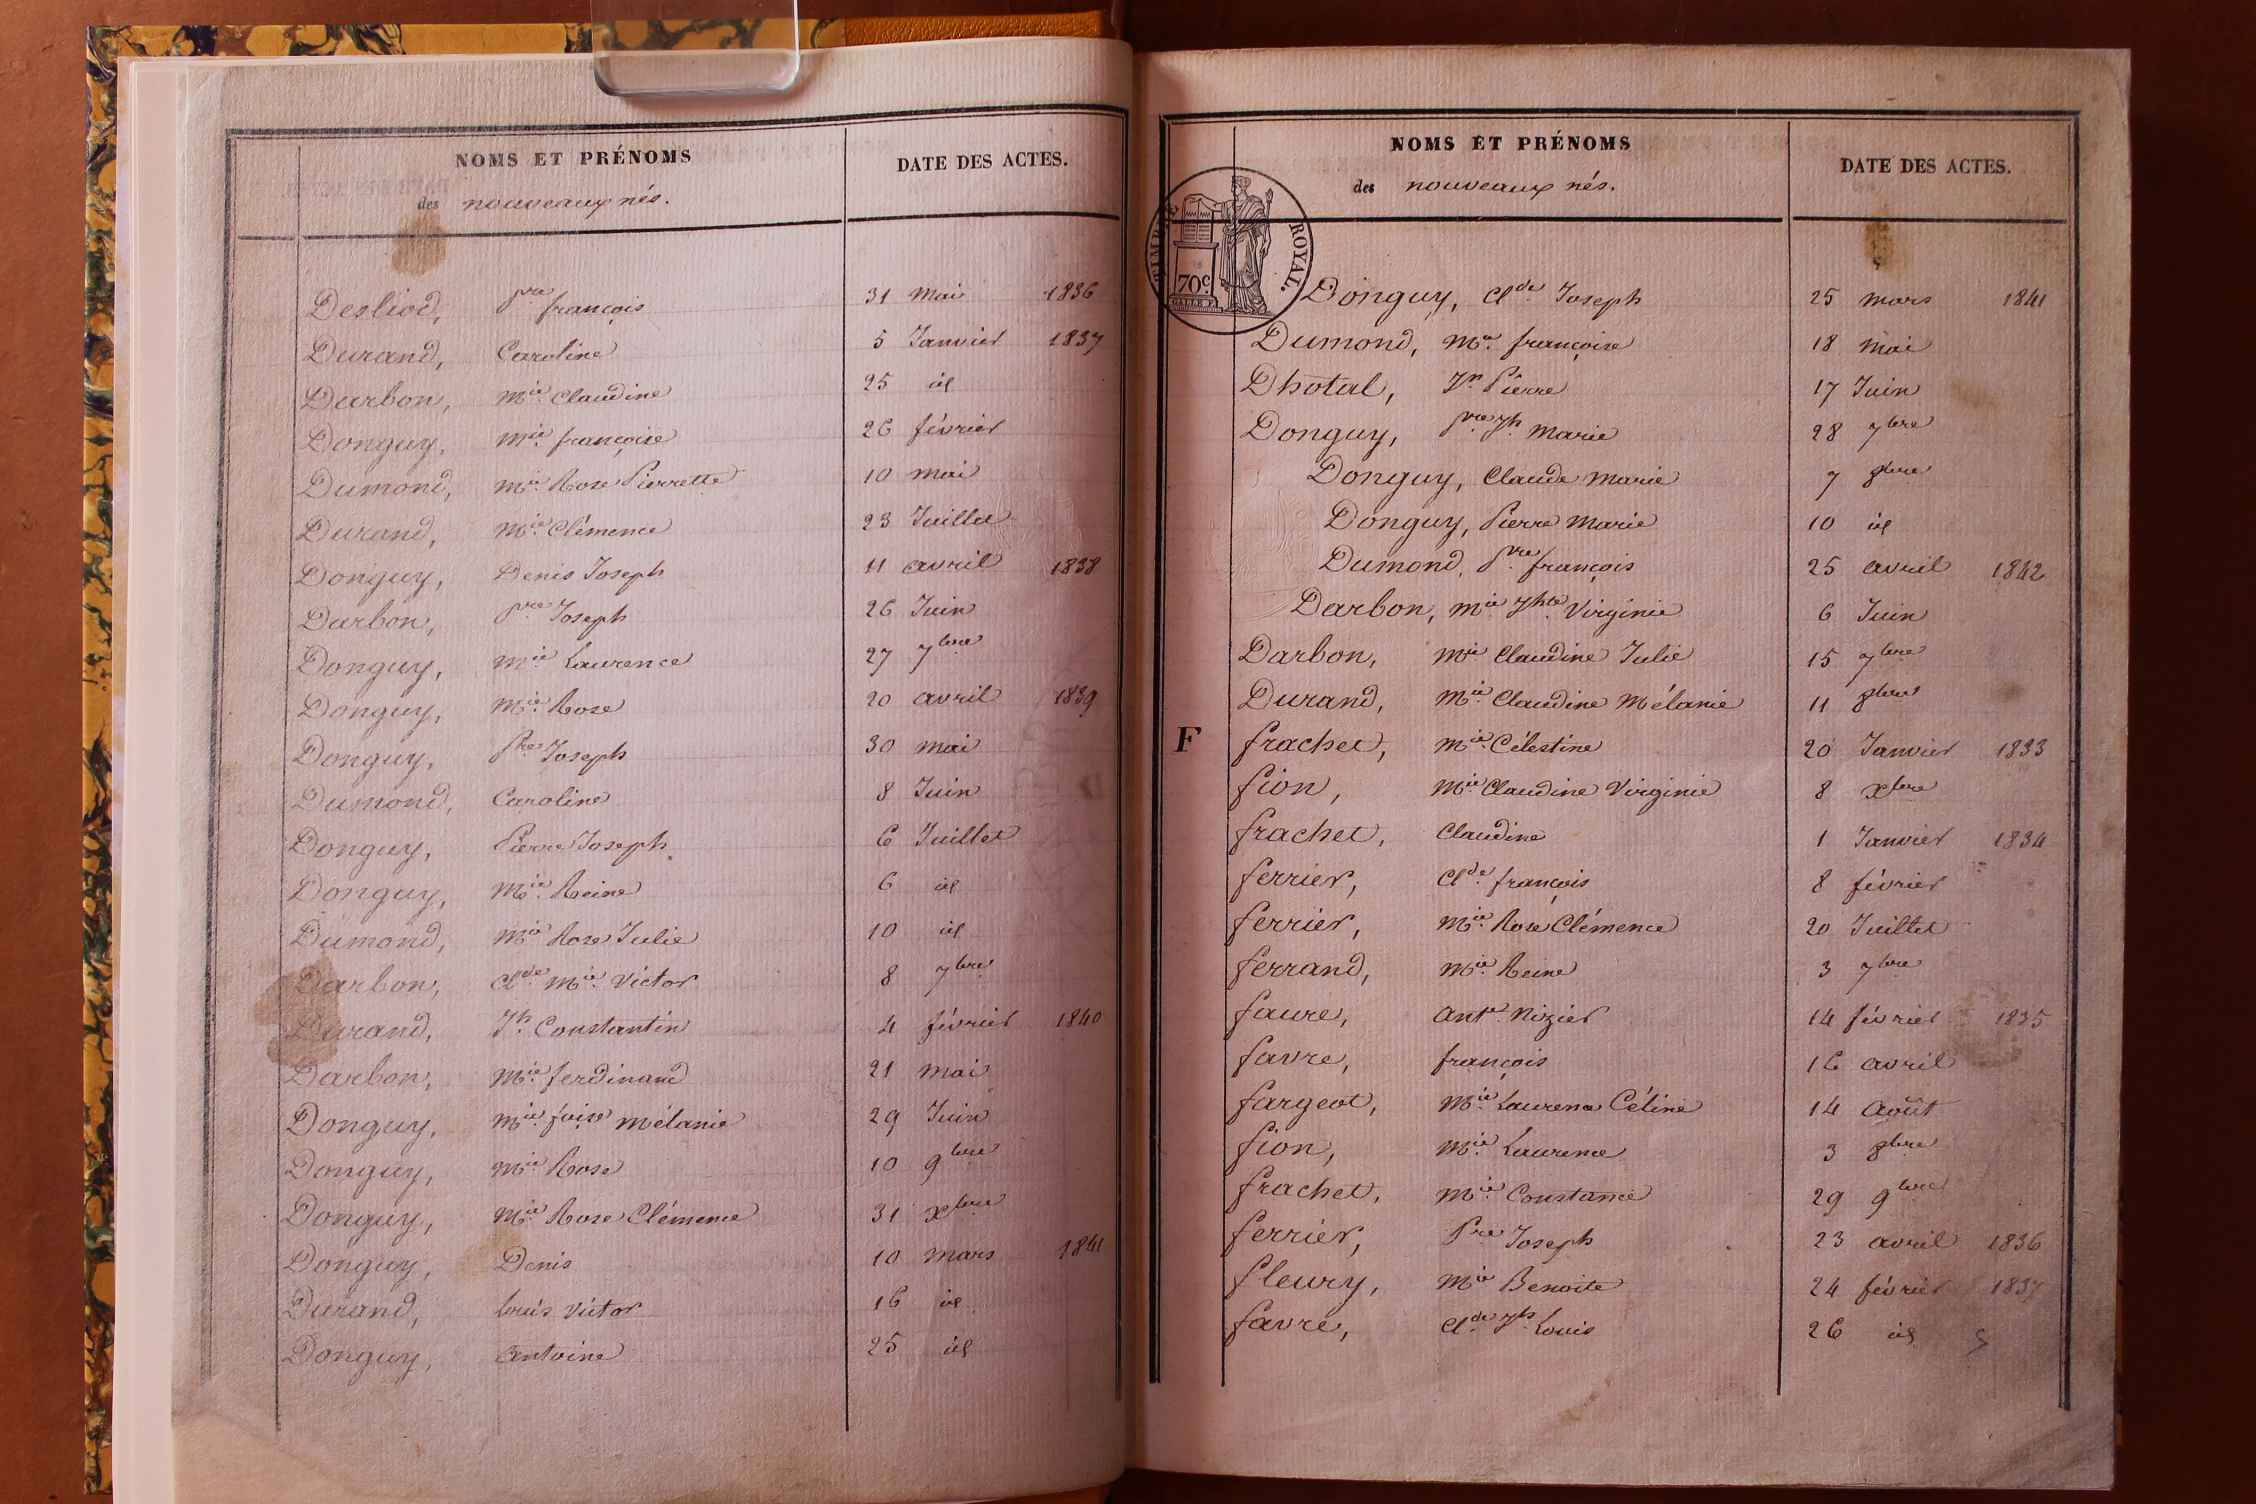 NOMS ET PRÉNOMS
des nouveaux nés.
DATE DES ACTES.
Desliod, pre françois 31 Mai 1836
Durand, Caroline 5 Janvier 1837
Darbon, Mie Claudine 25 id
Donguy, Mie françoise 26 février
Dumond, Mie Rose Pierrette 10 mai
Durand, Mie Clémence 23 Juillet
Donguy, Denis Joseph 11 avril 1838
Darbon, pre Joseph 26 Juin
Donguy, Mie Laurence 27 7bre
Donguy, Mie Rose 20 avril 1839
Donguy, Pre Joseph 30 mai
Dumond, Caroline 8 Juin
Donguy, Pierre Joseph 6 Juillet
Donguy, Mie Reine 6 id
Dumond, Mie Rose Julie 10 id
Darbon, Clde Mie Victor 8 7bre
Durand, Jh Constantin 4 février 1840
Darbon, Mie ferdinand 21 mai
Donguy, Mie foise Mélanie 29 Juin
Donguy, Mie Rose 10 9bre
Donguy, Mie Rose Clémence 31 Xbre
Donguy, Denis 10 mars 1841
Durand, Louis Victor 16 id
Donguy, Antoine 25 id
NOMS ET PRÉNOMS
des nouveaux nés.
DATE DES ACTES.
TIMBRE ROYAL.
70c.
Donguy, Clde Joseph 25 mars 1841
Dumond, Mie françoise 18 mai
Dhotal, Jn Pierre 17 Juin
Donguy, pre Jh Marie 28 7bre
Donguy, Claude Marie 7 8bre
Donguy, Pierre Marie 10 id
Dumond, pre françois 25 avril 1842
Darbon, Mie Jhte Virginie 6 Juin
Darbon, Mie Claudine Julie 15 7bre
Durand, Mie Claudine Mélanie 11 8bre
F frachet, Mie Célestine 20 Janvier 1833
fion, Mie Claudine Virginie 8 Xbre
frachet, Claudine 1 Janvier 1834
ferrier, Clde françois 8 février
ferrier, Mie Rose Clémence 20 Juillet
ferrand, Mie Reine 3 7bre
faure, Ante Nizier 14 février 1835
favre, françois 16 avril
fargeot, Mie Laurence Céline 14 Août
fion, Mie Laurence 3 8bre
frachet, Mie Constance 29 9bre
ferrier, Pre Joseph 23 avril 1836
fleury, Mie Benoite 24 février 1837
favre, Clde Jh Louis 26 id